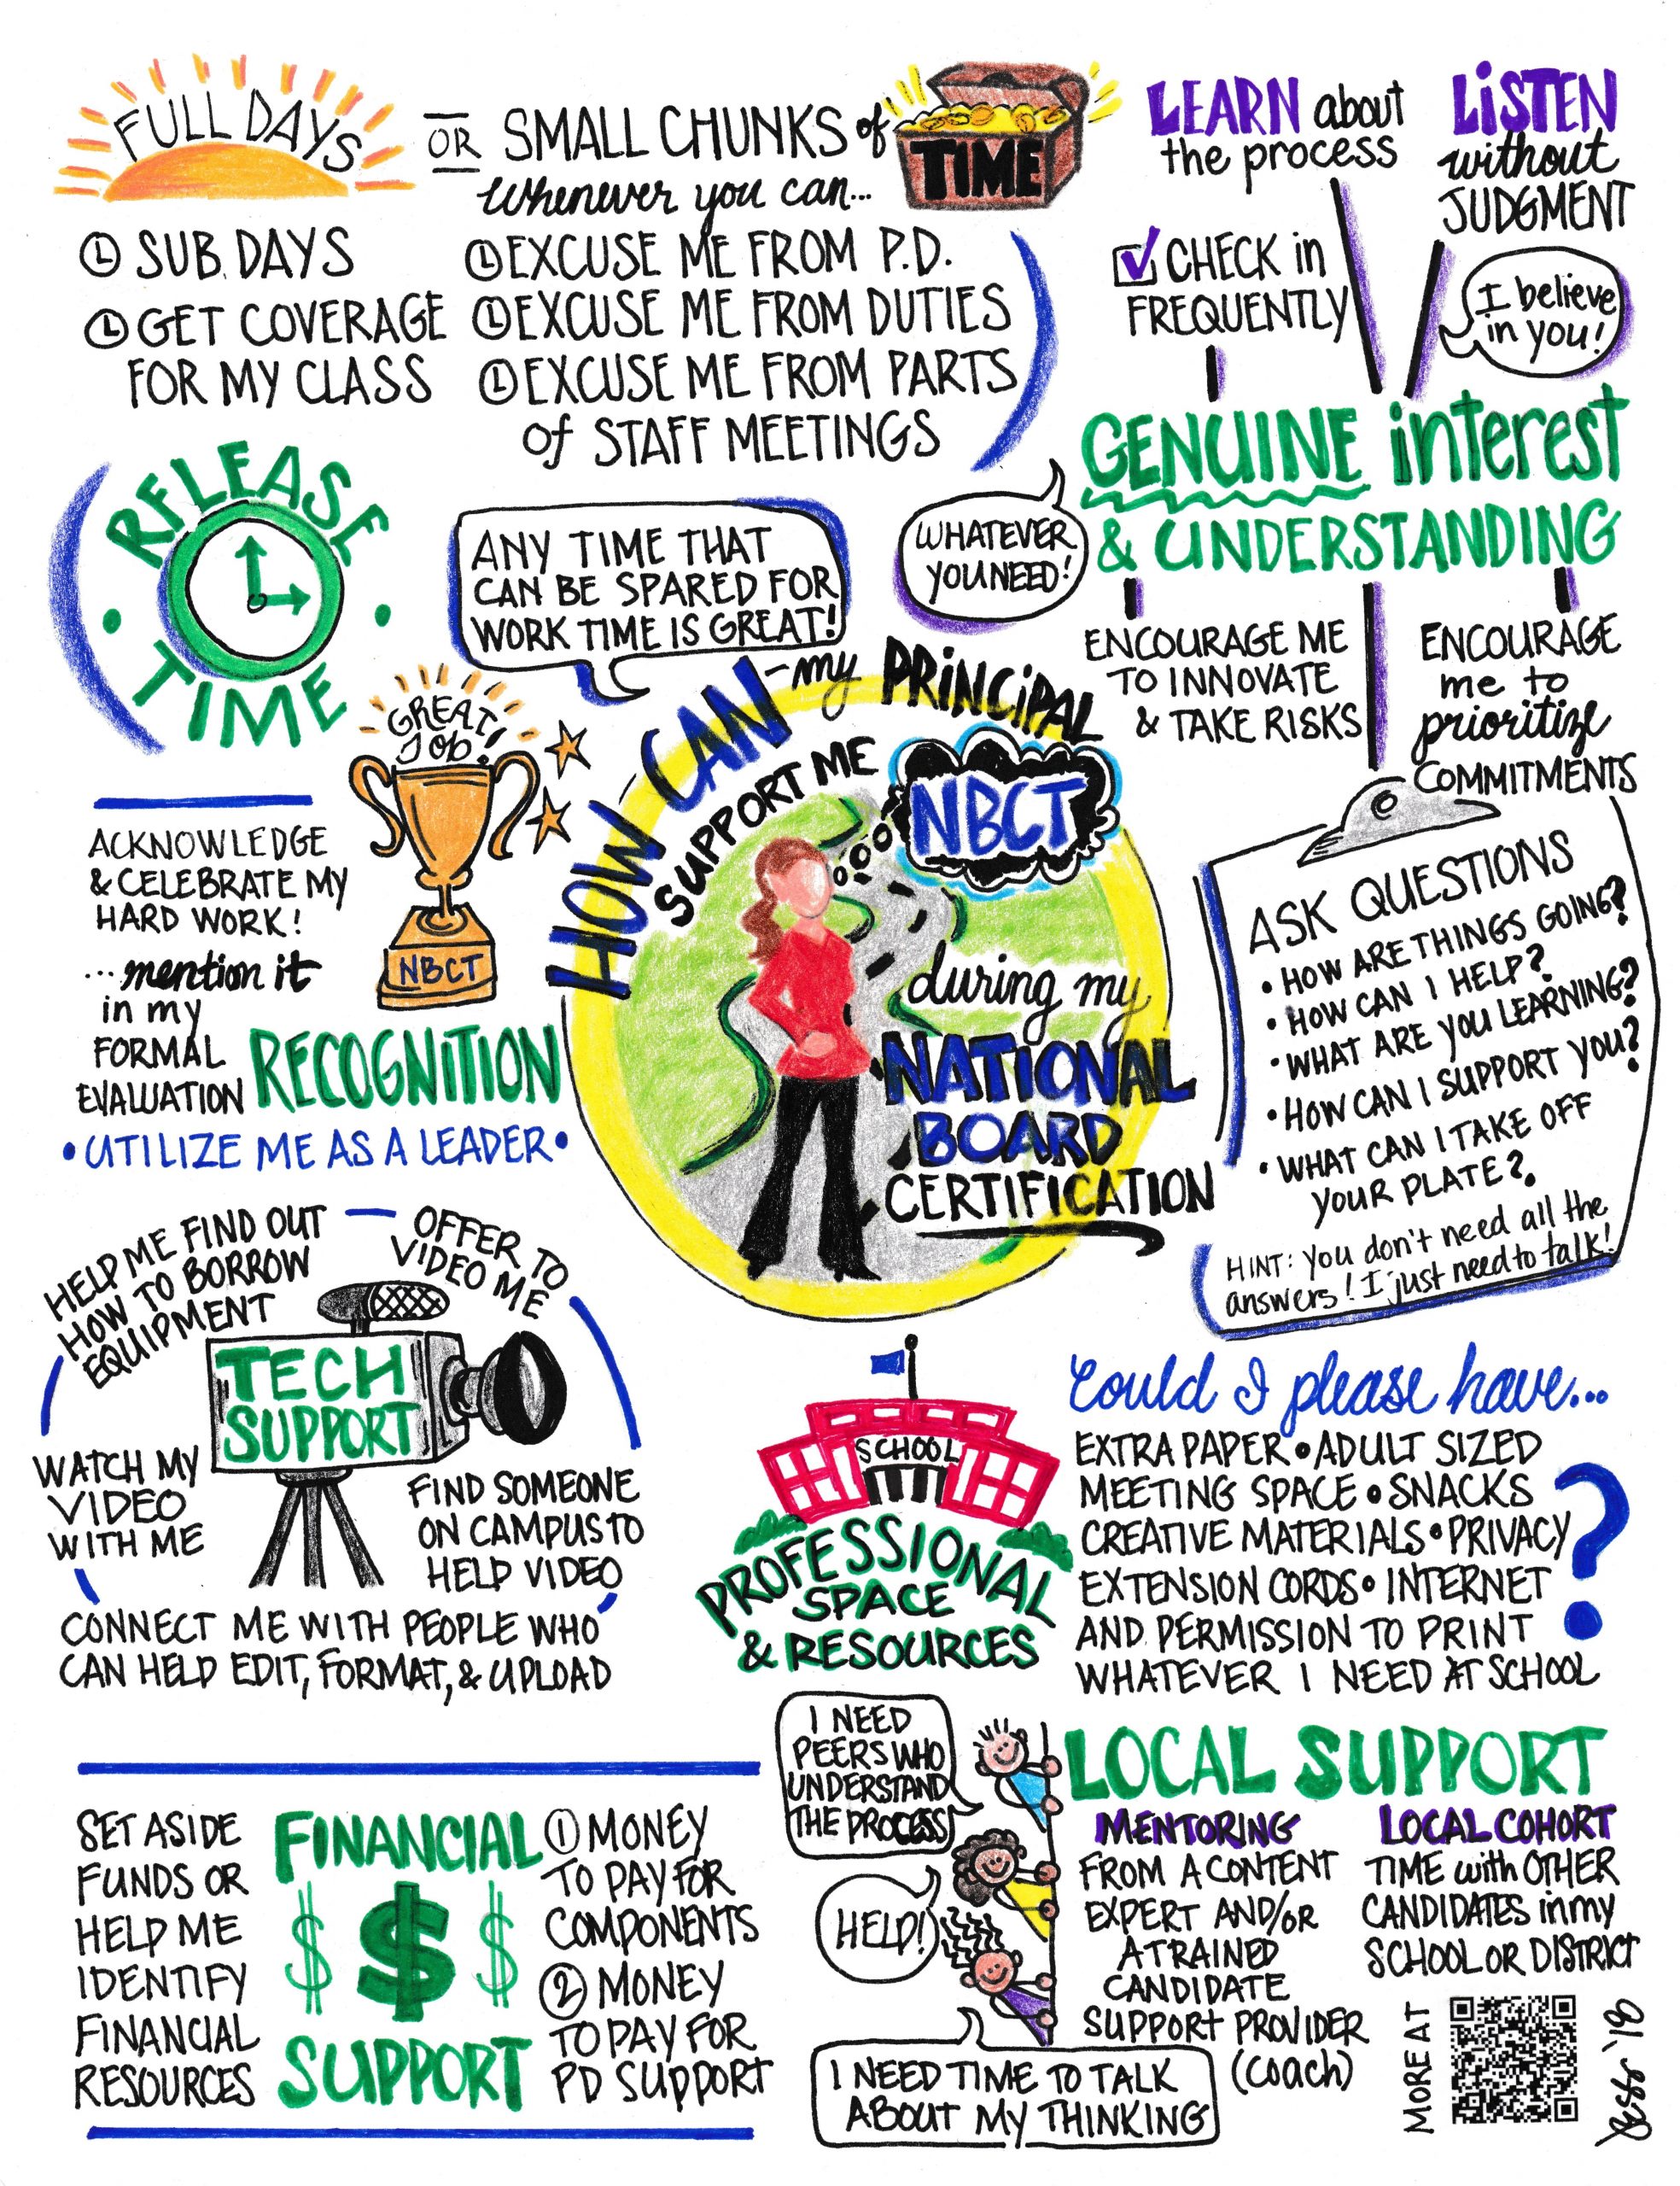 FULL DAYS
OR SMALL CHUNKS of TIME
whenever you can...
SUB DAYS
GET COVERAGE
FOR MY CLASS
EXCUSE ME FROM P.D.
EXCUSE ME FROM DUTIES
EXCUSE ME FROM PARTS
of STAFF MEETINGS
RELEASE
TIME
ANY TIME THAT
CAN BE SPARED FOR
WORK TIME IS GREAT!
LEARN about
the process
LISTEN
without
JUDGMENT
CHECK in
FREQUENTLY
I believe
in you!
GENUINE interest
& UNDERSTANDING
WHATEVER
YOU NEED!
ENCOURAGE ME
TO INNOVATE
& TAKE RISKS
ENCOURAGE
me to
prioritize
COMMITMENTS
HOW CAN my PRINCIPAL
SUPPORT ME
NBCT
during my
NATIONAL
BOARD
CERTIFICATION
GREAT
Job!
NBCT
ACKNOWLEDGE
& CELEBRATE MY
HARD WORK!
...mention it
in my
FORMAL
EVALUATION
RECOGNITION
• UTILIZE ME AS A LEADER •
ASK QUESTIONS
• HOW ARE THINGS GOING?
• HOW CAN I HELP?
• WHAT ARE YOU LEARNING?
• HOW CAN I SUPPORT YOU?
• WHAT CAN I TAKE OFF
YOUR PLATE?
HINT: you don't need all the
answers! I just need to talk!
HELP ME FIND OUT
HOW TO BORROW
EQUIPMENT
OFFER TO
VIDEO ME
TECH
SUPPORT
WATCH MY
VIDEO
WITH ME
FIND SOMEONE
ON CAMPUS TO
HELP VIDEO
CONNECT ME WITH PEOPLE WHO
CAN HELP EDIT, FORMAT, & UPLOAD
SCHOOL
PROFESSIONAL
SPACE
& RESOURCES
Could I please have...
EXTRA PAPER • ADULT SIZED
MEETING SPACE • SNACKS
CREATIVE MATERIALS • PRIVACY
EXTENSION CORDS • INTERNET
AND PERMISSION TO PRINT
WHATEVER I NEED AT SCHOOL
?
SET ASIDE
FUNDS OR
HELP ME
IDENTIFY
FINANCIAL
RESOURCES
FINANCIAL
$ $ $
SUPPORT
① MONEY
TO PAY FOR
COMPONENTS
② MONEY
TO PAY FOR
PD SUPPORT
I NEED
PEERS WHO
UNDERSTAND
THE PROCESS
HELP!
I NEED TIME TO TALK
ABOUT MY THINKING
LOCAL SUPPORT
MENTORING
FROM A CONTENT
EXPERT AND/OR
A TRAINED
CANDIDATE
SUPPORT PROVIDER
(coach)
LOCAL COHORT
TIME with OTHER
CANDIDATES in my
SCHOOL OR DISTRICT
MORE AT